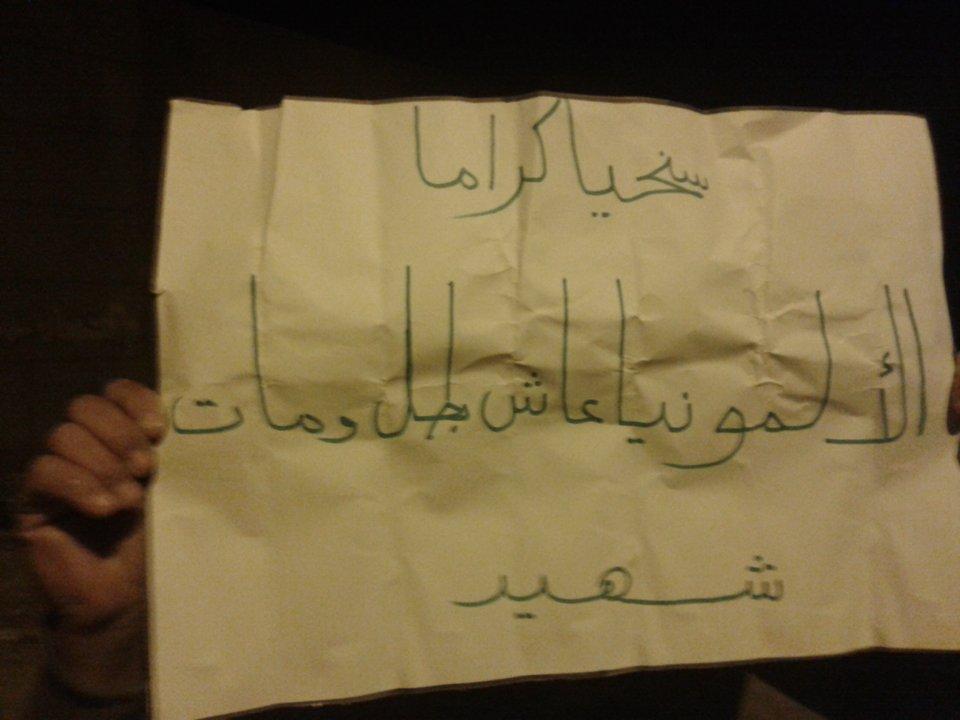 سنحيا كراما
الألمونيا عاش بطل ومات
شهيد